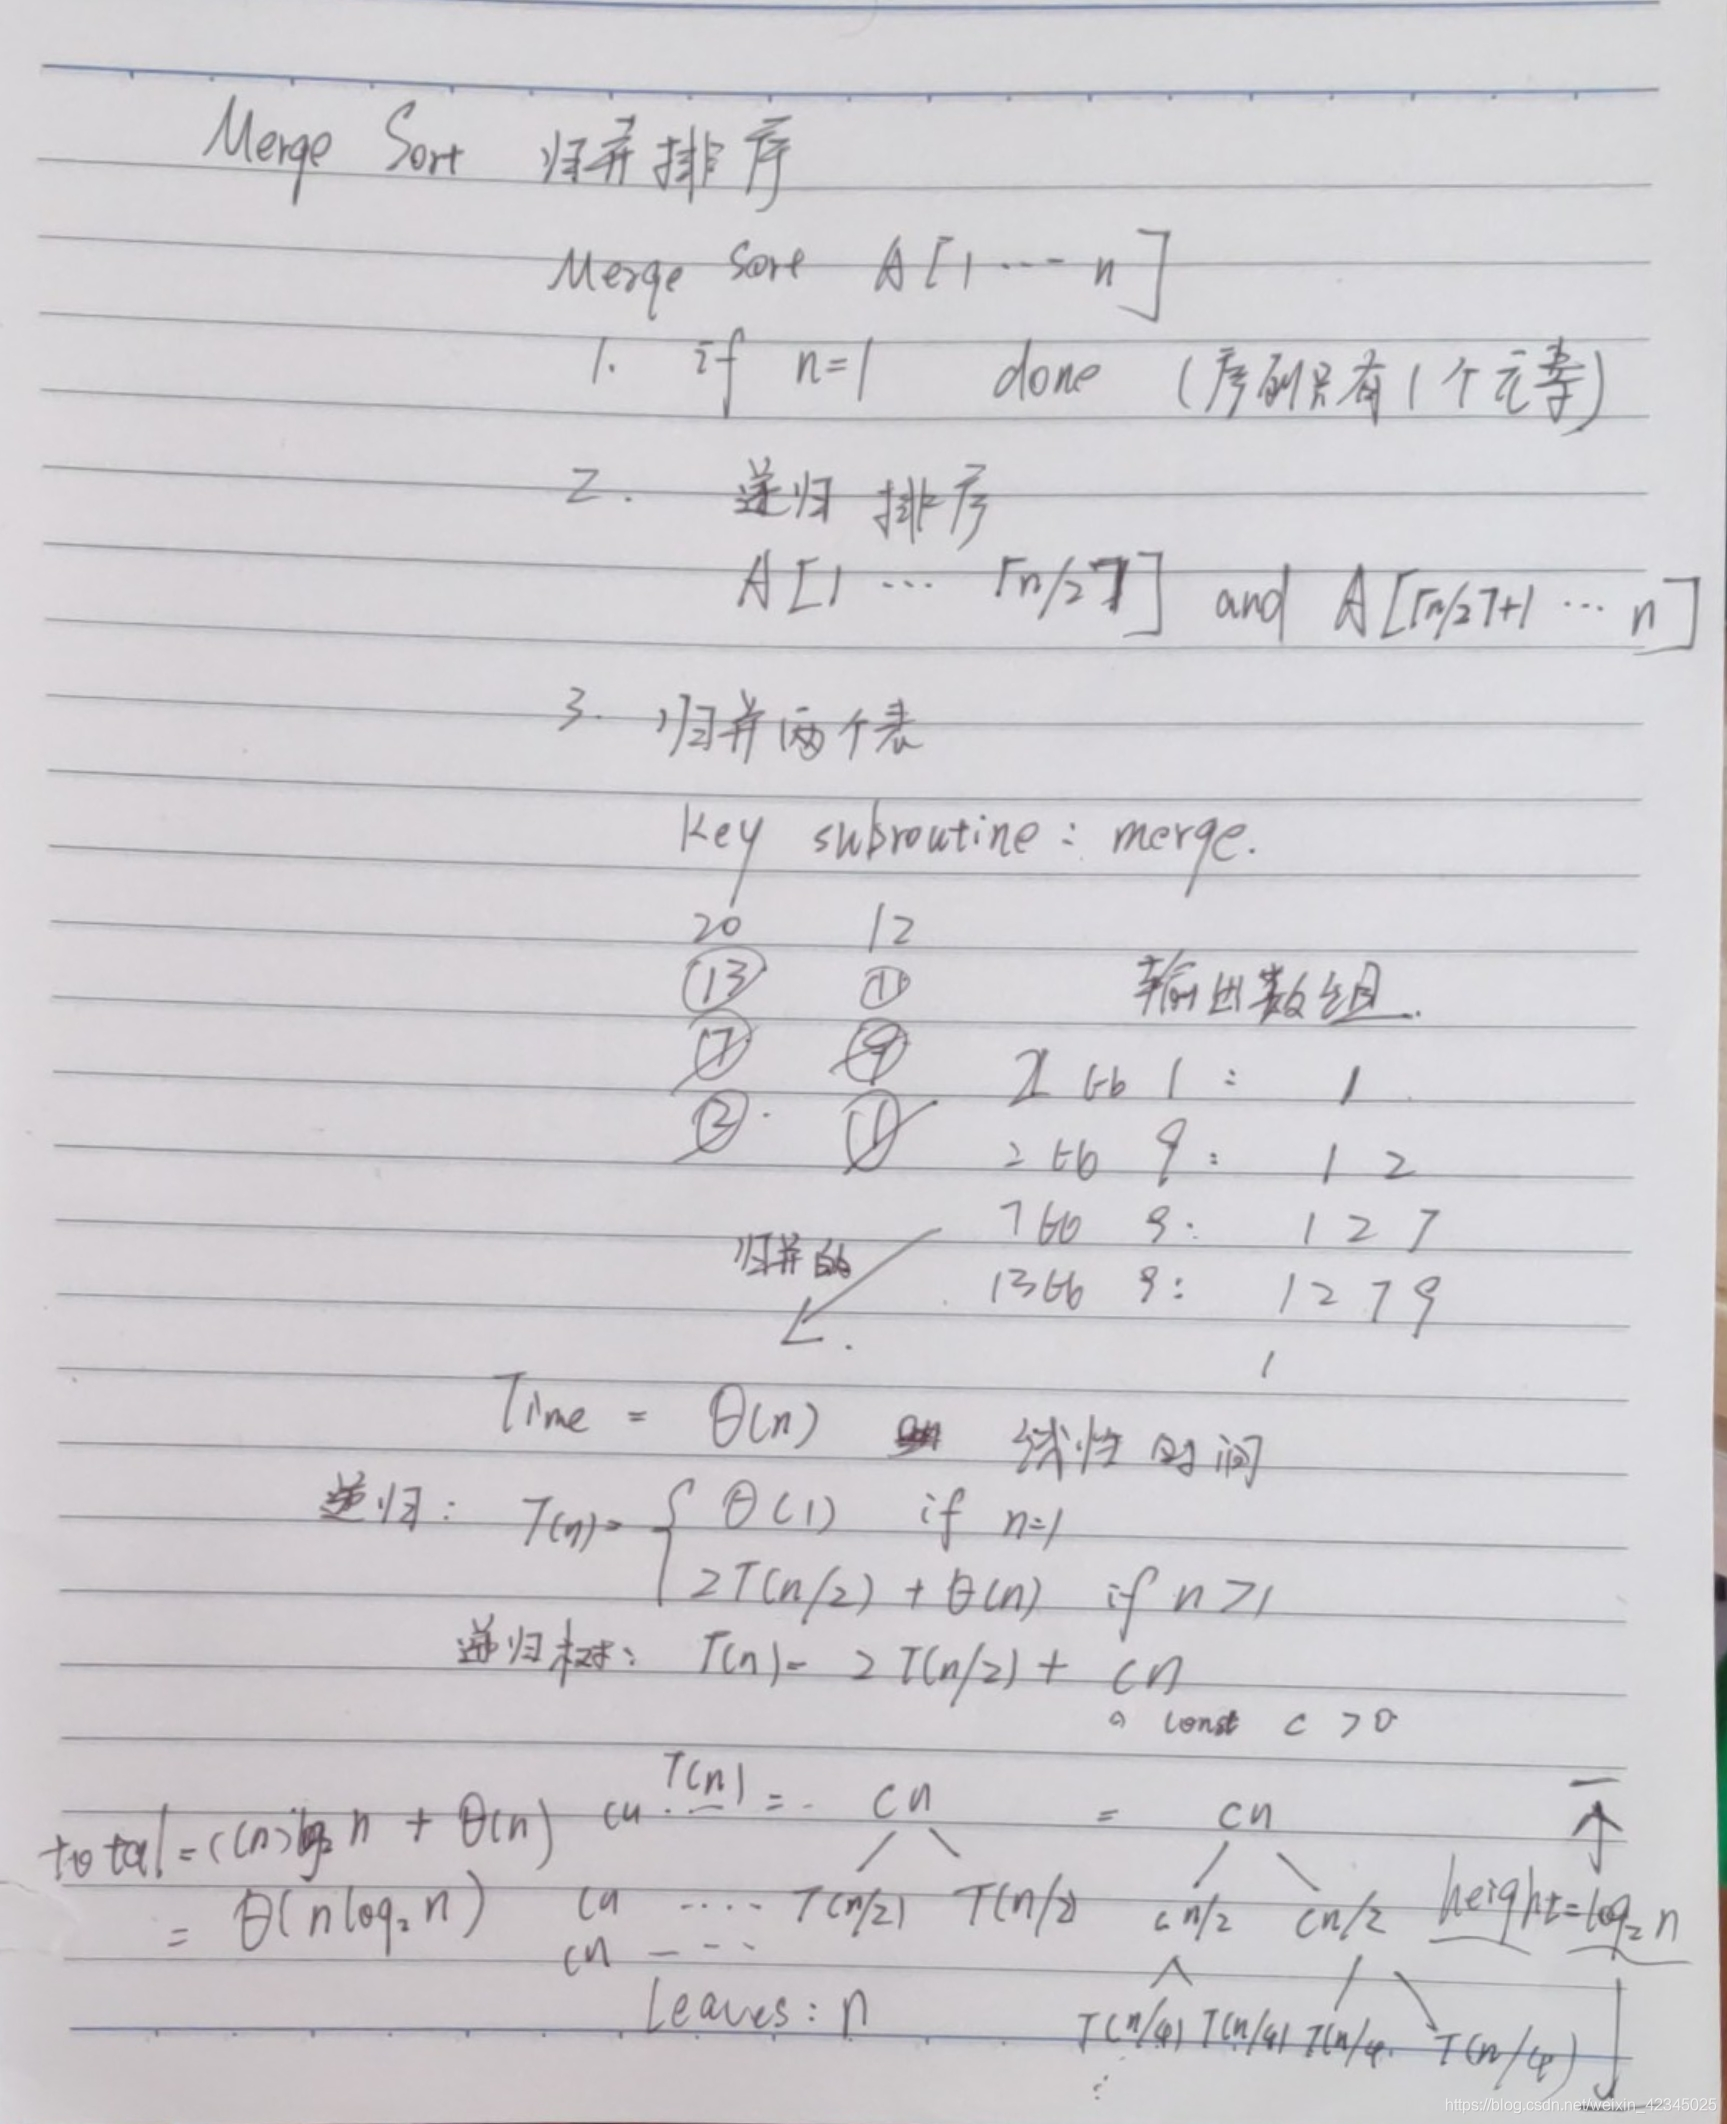 Merge Sort 归并排序
Merge Sort A[1 ... n]
1. if n=1 done (序列只有1个元素)
2. 递归 排序
A[1 ... ⌈n/2⌉] and A[⌈n/2⌉+1 ... n]
3. 归并两个表
Key subroutine : merge.
20 12
13 11 输出数组.
7 9 2比1: 1
2 1 2比9: 1 2
7比9: 1 2 7
归并的 13比9: 1 2 7 9
1
Time = Θ(n) 线性时间
递归: T(n)= { Θ(1) if n=1
2T(n/2) + Θ(n) if n>1
递归树: T(n)= 2T(n/2) + cn
const c >0
total = (cn)log₂n + Θ(n) cn ... T(n) = cn = cn
= Θ(nlog₂n) cn .... T(n/2) T(n/2) cn/2 cn/2 height=log₂n
cn ----
Leaves: n T(n/4) T(n/4) T(n/4 T(n/4)
https://blog.csdn.net/weixin_42345025